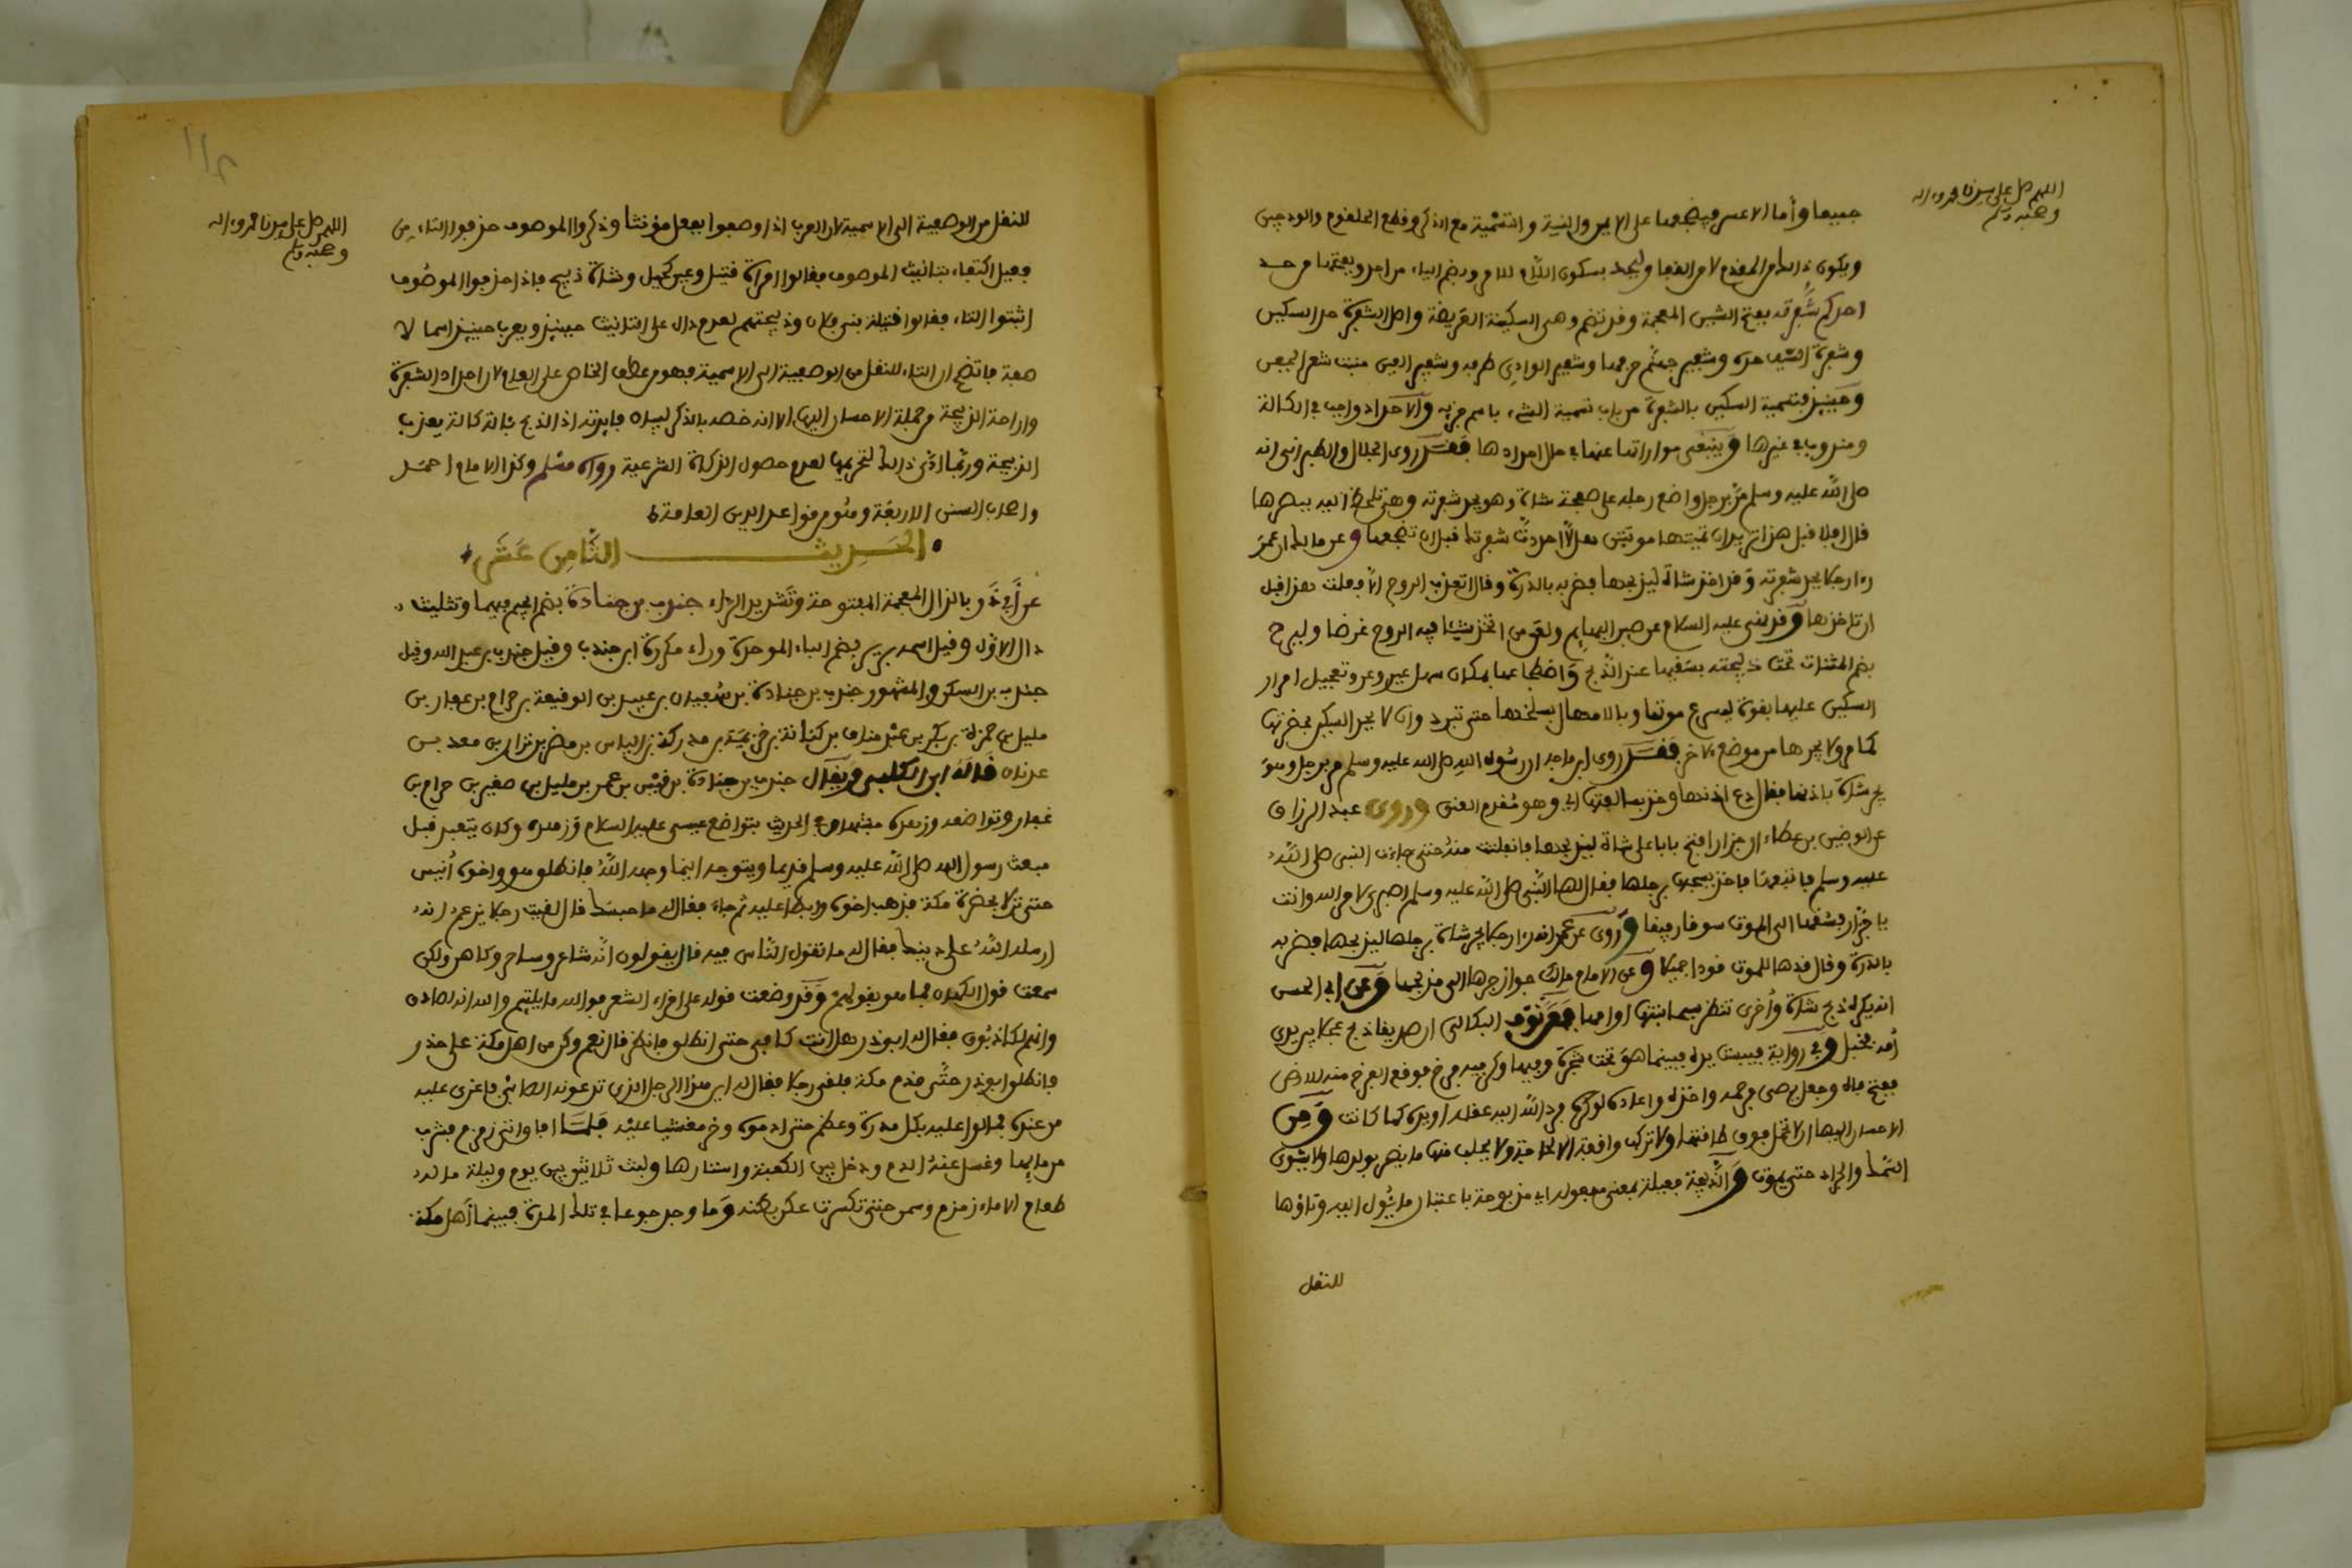 اللهم صل على سيدنا محمد وءاله
وصحبه وسلم
جميعا وأما الاعسر فيضجعها على الايمن والنية والتسمية مع الذكر وقطع الحلقوم والودجين
ويكون ذلك من المقدم لا من القفا وليحد بسكون اللام للامر وبضم الياء من احد وبفتحها من حد
احدكم شفرته بفتح الشين المعجمة وقد تضم وهى السكينة العريضة واصل الشفرة حد السكين
وشفرة السيف حده وشفير جهنم حرفها وشفير الوادى طرفه وشفير العين منبت شعر الجفن
وحينئذ فتسمية السكين بالشفرة من باب تسمية الشىء باسم جزئه والاحداد واجب فى الكالة
ومندوب فى غيرها وينبغى مواراتها عنها فى حال احدادها فقد روى الخلال والطبرانى انه
صلى الله عليه وسلم مر برجل واضع رجله على صفحة شاة وهو يحد شفرته وهى تلحظ اليه ببصرها
فقال افلا قبل هذا تريد ان تميتها موتتين هلا احددت شفرتك قبل ان تضجعها وعن مالك ان عمر
رءا رجلا يحد شفرته وقد اخذ شاة ليذبحها فضربه بالدرة وقال اتعذب الروح الا فعلت هذا قبل
ان تاخذها وقد نهى عليه السلام عن صبر البهايم ولعن من اتخذ شيئا فيه الروح غرضا وليرح
بضم المثناة تحت ذبيحته بسقيها عند الذبح واضطجاعها بمكان سهل غير وعر وتعجيل امرار
السكين عليها بقوة ليسرع موتها وبالامهال بسلخها حتى تبرد وان لا يحد السكين بحضرتها
كما مر ولا يجرها من موضع لاخر فقد روى ابن ماجه ان رسول الله صلى الله عليه وسلم مر برجل وهو
يجر شاة باذنها فقال دع اذنها وخذ بسالفتها اي وهو مقدم العنق وروى عبد الرزاق
عن الوضين بن عطاء ان جزارا فتح بابا على شاة ليذبحها فانفلتت منه حتى جاءت النبى صلى الله
عليه وسلم فاتبعها فاخذ يسحبها برجلها فقال لها النبى صلى الله عليه وسلم اصبرى لامر الله وانت
يا جزار فسقها الى الموت سوقا رفيقا وروى عن عمر انه رءا رجلا يجر شاة برجلها ليذبحها فضربه
بالدرة وقال قدها للموت قودا جميلا وعن الامام مالك جواز جرها الى مذبحها وعن ابى الحسن
انه يكره ذبح شاة وأخرى تنظر سيما ابنتها او امها فعن نوف البكالى ان صديقا ذبح عجلا بين يدى
أمه فخبل وفى رواية فيبست يده فبينما هو تحت شجرة وفيها وكر فيه فرخ فوقع الفرخ منه للارض
ففتح فاه وجعل يصى فرحمه واخذه واعاده لوكره فرد الله اليه عقله او يده كما كانت ومن
الاحسان اليها ان لا تحمل فوق طاقتها ولا تركب واقفة الا لحاجة ولا يحلب منها ما يضر بولدها ولا يشوى
السمك والجراد حتى يموت والذبيحة فعيلة بمعنى مفعولة اي مذبوحة باعتبار ما يئول اليه وتاؤها
للنقل
اللهم صل على سيدنا محمد وءاله
وصحبه وسلم
للنقل من الوصفية الى الاسمية لان العرب اذا وصفوا بفعيل مؤنثا وذكروا الموصوف حذفوا التاء من
فعيل اكتفاء بتانيث الموصوف فقالوا امراة قتيل وعين كحيل وشاة ذبيح فاذا حذفوا الموصوف
اثبتوا التاء فقالوا قتيلة بنى فلان وذبيحتهم لعدم دال على التانيث حينئذ ويعرب حينئذ اسما لا
صفة فاتضح ان التاء للنقل من الوصفية الى الاسمية فهو من عطف الخاص على العام لان احداد الشفرة
واراحة الذبيحة من جملة الاحسان اليها الا انه خصه بالذكر لبيان فايدته اذ الذبح بئالة كالة يعذب
الذبيحة وربما ادى ذلك لتحريمها لعدم حصول الذكاة الشرعية رواه مسلم وكذا الامام احمد
واصحاب السنن الاربعة وهو من قواعد الدين العامة
الحديث الثامن عشر
عن أبى ذر بالذال المعجمة المفتوحة وتشديد الراء جندب بن جنادة بضم الجيم فيهما وتثليث
دال الاول وقيل اسمه برير بضم الباء الموحدة وراء مكررة ابن جندب وقيل جندب بن عبد الله وقيل
جندب بن السكن والمشهور جندب بن جنادة بن سفيان بن عبيد بن الوقيعة بن حرام بن غفار بن
مليل بن حمزة بن بكر بن عبد مناف بن كنانة بن خزيمة بن مدركة بن الياس بن مضر بن نزار بن معد بن
عدنان قاله ابن الكلبى ويقال جندب بن جنادة بن قيس بن عمر بن مليل بن صفير بن حرام بن
غفار وتواضعه وزهده مشهور فى الحديث بتواضع عيسى عليه السلام وزهده وكان يتعبد قبل
مبعث رسول الله صلى الله عليه وسلم قديما ويتوجه اينما وجهه الله فانطلق هو واخوه أنيس
حتى نزلا بحضرة مكة فذهب اخوه وابطا عليه ثم جاء فقال له ما حبسك قال لقيت رجلا يزعم انه
ارسله الله على دينك فقال له ما تقول الناس فيه قال يقولون انه شاعر وساحر وكاهن ولكن
سمعت قول الكهان فما هو بقولهم وقد وضعت قوله على اقراء الشعر فوالله ما يلتئم والله انه لصادق
وانهم لكاذبون فقال له ابو ذر هل انت كافى حتى انطلق فانظر قال نعم وكن من اهل مكة على حذر
فانطلق ابو ذر حتى قدم مكة فلقى رجلا فقال له اين هذا الرجل الذى تدعونه الصابى فاغرى عليه
من عنده فمالوا عليه بكل مدرة وعظم حتى ادموه وخر مغشيا عليه فلما افاق اتى زمزم فشرب
من مايها وغسل عنه الدم ودخل بين الكعبة واستارها ولبث ثلاثين بين يوم وليلة ما له
طعام الا ماء زمزم وسمن حتى تكسرت عكن بطنه وما وجد جوعا فى تلك المدة فبينما أهل مكة